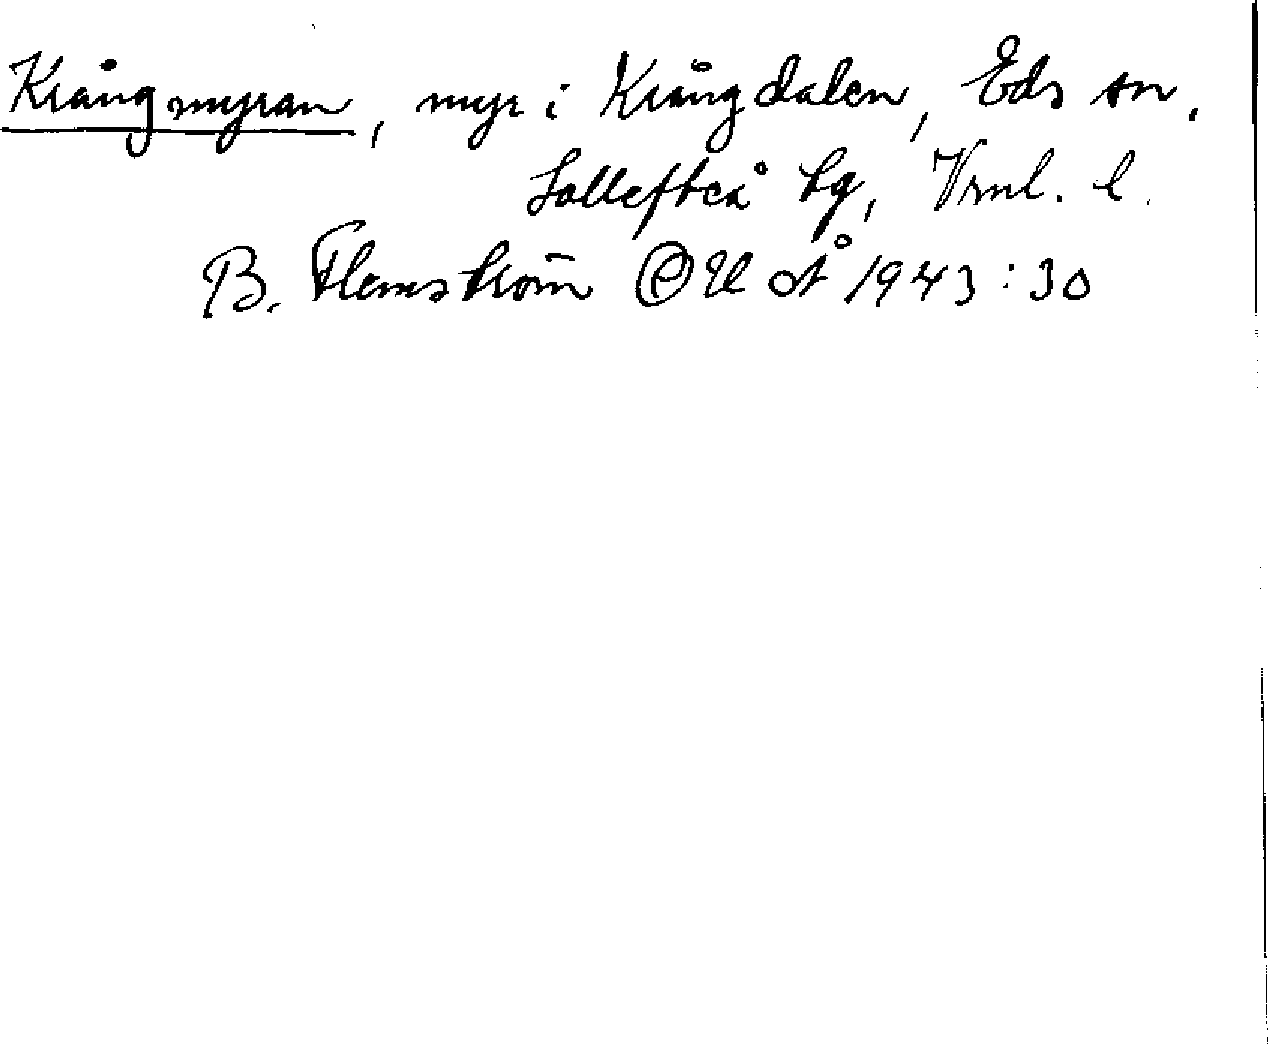 Krångmyran, myr i Krångdalen, Eds sn.
Sollefteå tg, Vrnl. l.
B. Flemström OUOÅ 1943:30